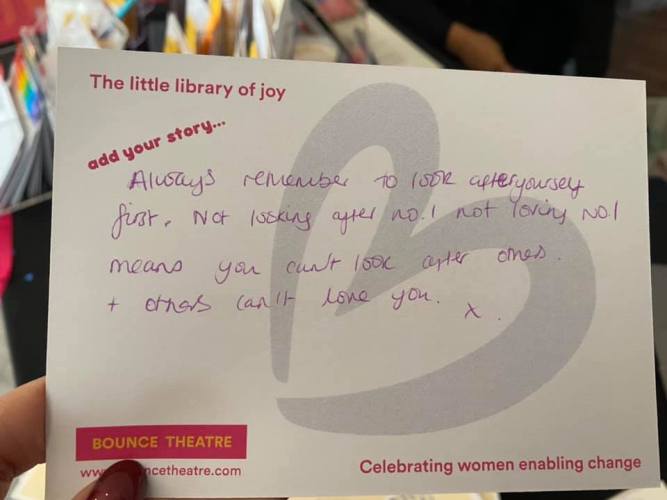 The little library of joy
add your story...
Always remember to look after yourself
first. Not looking after no.1 not loving No.1
means you can't look after others.
+ others can't love you. x.
BOUNCE THEATRE
www. ncetheatre.com
Celebrating women enabling change